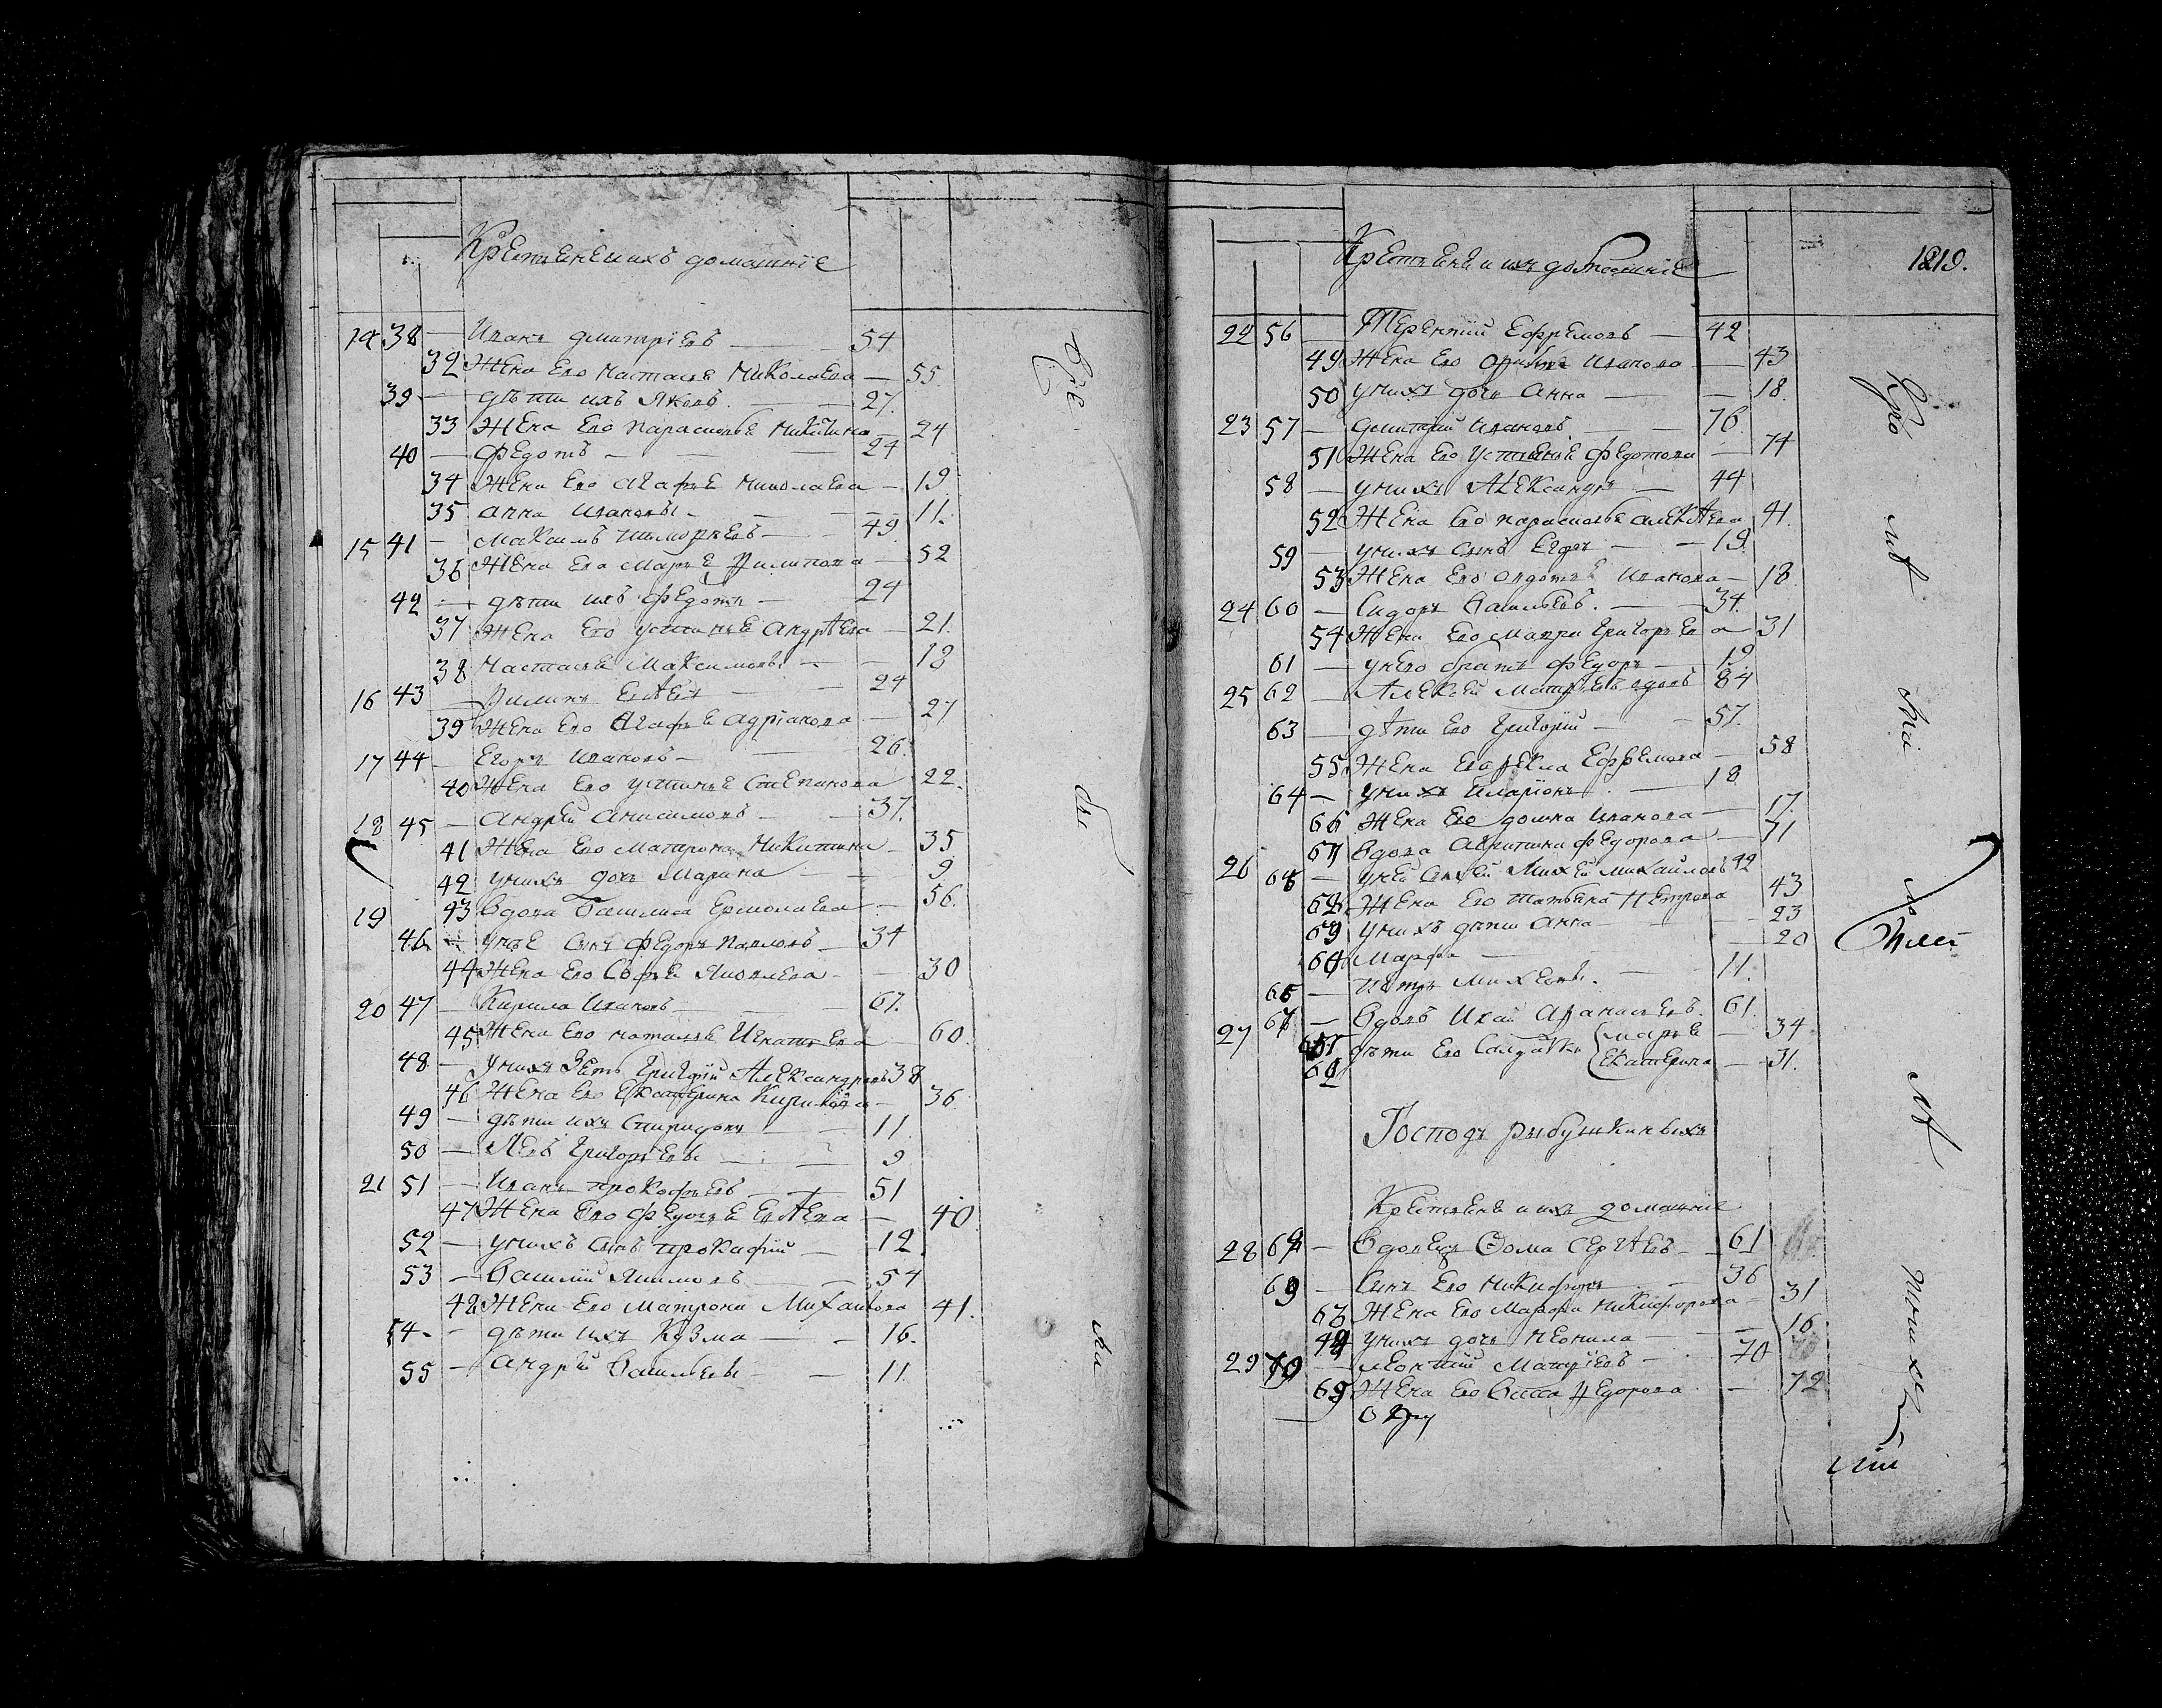 Крестьяне и ихъ домашніе
14 38 — Иванъ Дмитріевъ — 54
32 Жена Его Настасья Николаева — 55
39 — дѣти ихъ Яковъ — 27
33 Жена Его Парасковья Никитина — 24
40 — Федотъ — 24
34 Жена Его Агафья Николаева — 19
35 Анна Ивановы — 11
15 41 — Максимъ — 49
36 Жена Его Марья Филипова — 52
42 — дѣти ихъ Федотъ — 24
37 Жена Его Устинья Андрѣева — 21
38 Настасья Максимовы — 18
16 43 — Филипъ — 24
39 Жена Его Агафья Адріанова — 27
17 44 — Егоръ Ивановъ — 26
40 Жена Его Устинья Степанова 22
18 45 — Андрей Анисимовъ — 37
41 Жена Его Матрона Никитина — 35
42 у нихъ дочь Марина — 9
19 43 Вдова Василиса Ермолаева — 56
46 у нее Сынъ Федоръ Павловъ — 34
44 Жена Его Софья Яковлева — 30
20 47 — Кирила Ивановъ — 67
45 Жена Его Наталья Игнатьева — 60
48 — у нихъ Зять Григорій Александровъ 38
46 Жена Его Екатерина Кирилова — 36
49 — дѣти ихъ Спиридонъ — 11
50 — Левъ Григорьевы — 9
21 51 — Иванъ Прокофьевъ — 51
47 Жена Его Федосья — 40
52 — у нихъ Сынъ Прокафий — 12
53 — Василій — 54
48 Жена Его Матрона Михайлова 41
54 — дѣти ихъ Кузма — 16
55 — Андрей Васильевы — 11
1819.
Крестьяне и ихъ домашніе
22 56 — Терентий Ефремовъ — 42
49 Жена Его Иванова — 43
50 у нихъ дочь Анна — 18
23 57 — Дмитрий Ивановъ — 76
51 Жена Его Устинья Федотова — 74
58 — у нихъ Александръ — 44
52 Жена Его Парасковья 41
59 — у нихъ Сынъ Егоръ — 19
53 Жена Его Авдотья Иванова — 18
24 60 — Сидоръ Васильевъ — 34
54 Жена Его Мавра Григорьева — 31
61 — у него братъ Федоръ — 19
25 62 — Алексей вдовъ 84
63 — дѣти Его Григорий — 57
55 Жена Его Фекла Ефремова — 58
64 — у нихъ Иларіонъ — 18
Жена Его Домна Иванова — 17
Вдова Акулина Федорова — 71
26 — у ней Сынъ Михей Михаиловъ 42
Жена Его Татьяна Петрова 43
у нихъ дѣти Анна — 23
Марфа — 20
Петръ Михеевы — 11
27 — Вдовъ Исай Афанасьевъ 61
дѣти Его Солдатки Марья — 34
Екатерина — 31
Господъ Рябушкиныхъ
Крестьяне и ихъ домашніе
28 — Вдовецъ Фома Сергѣевъ — 61
69 — Сынъ Его Никифоръ — 36
63 Жена Его Марфа Никифорова — 31
у нихъ дочь Неонила — 16
29 70 — Леонтий — 70
65 Жена Его Федорова — 72